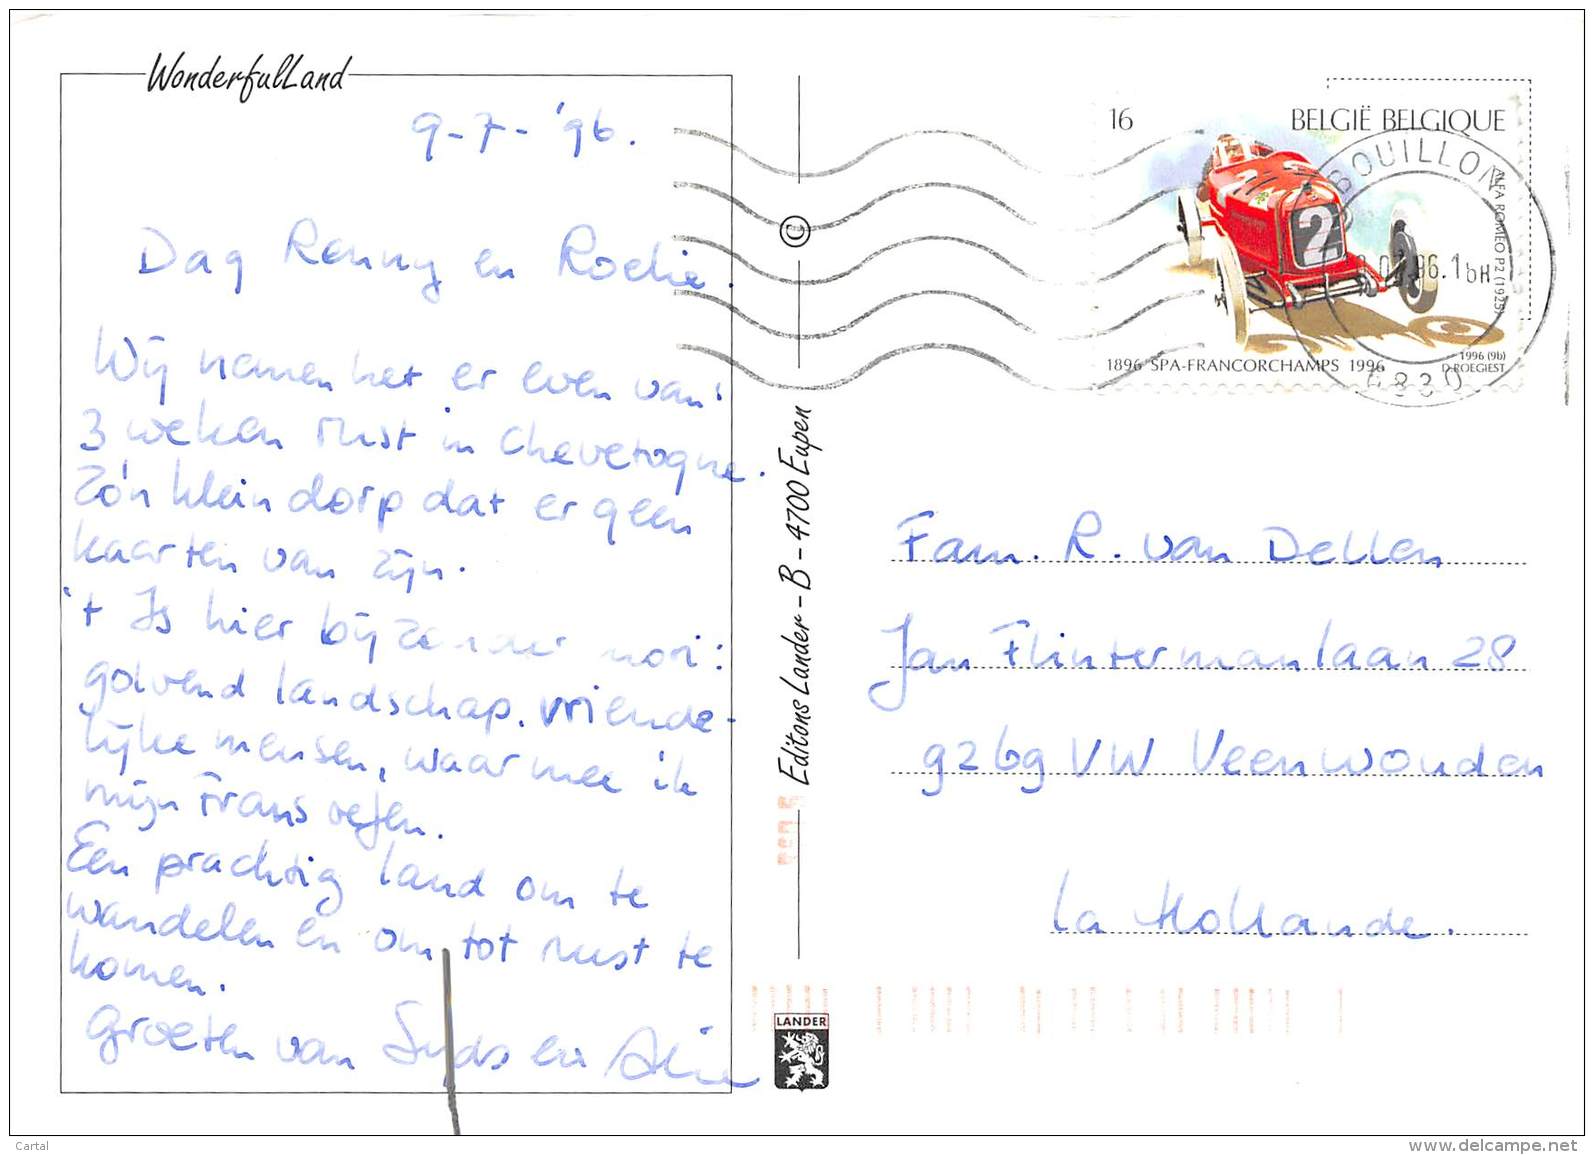 WonderfulLand
9-7-'96.
Dag Renny en Roelie.
Wij nemen het er even van:
3 weken rust in Chevetogne.
Zo'n klein dorp dat er geen
kaarten van zijn.
't Is hier bijzonder mooi:
golvend landschap, vriende-
lijke mensen, waarmee ik
mijn Frans oefen.
Een prachtig land om te
wandelen en om tot rust te
komen.
Groeten van Syds en
© Editons Lander - B - 4700 Eupen
LANDER
16 BELGIË BELGIQUE
ALFA ROMEO P2 (1925)
2
1896 SPA-FRANCORCHAMPS 1996
1996 (9b)
D. ROEGIEST
BOUILLON
96.16H
6830
Fam. R. van Dellen
Jan Flintermanlaan 28
9269 VW Veenwouden
La Hollande.
Cartal
www.delcampe.net